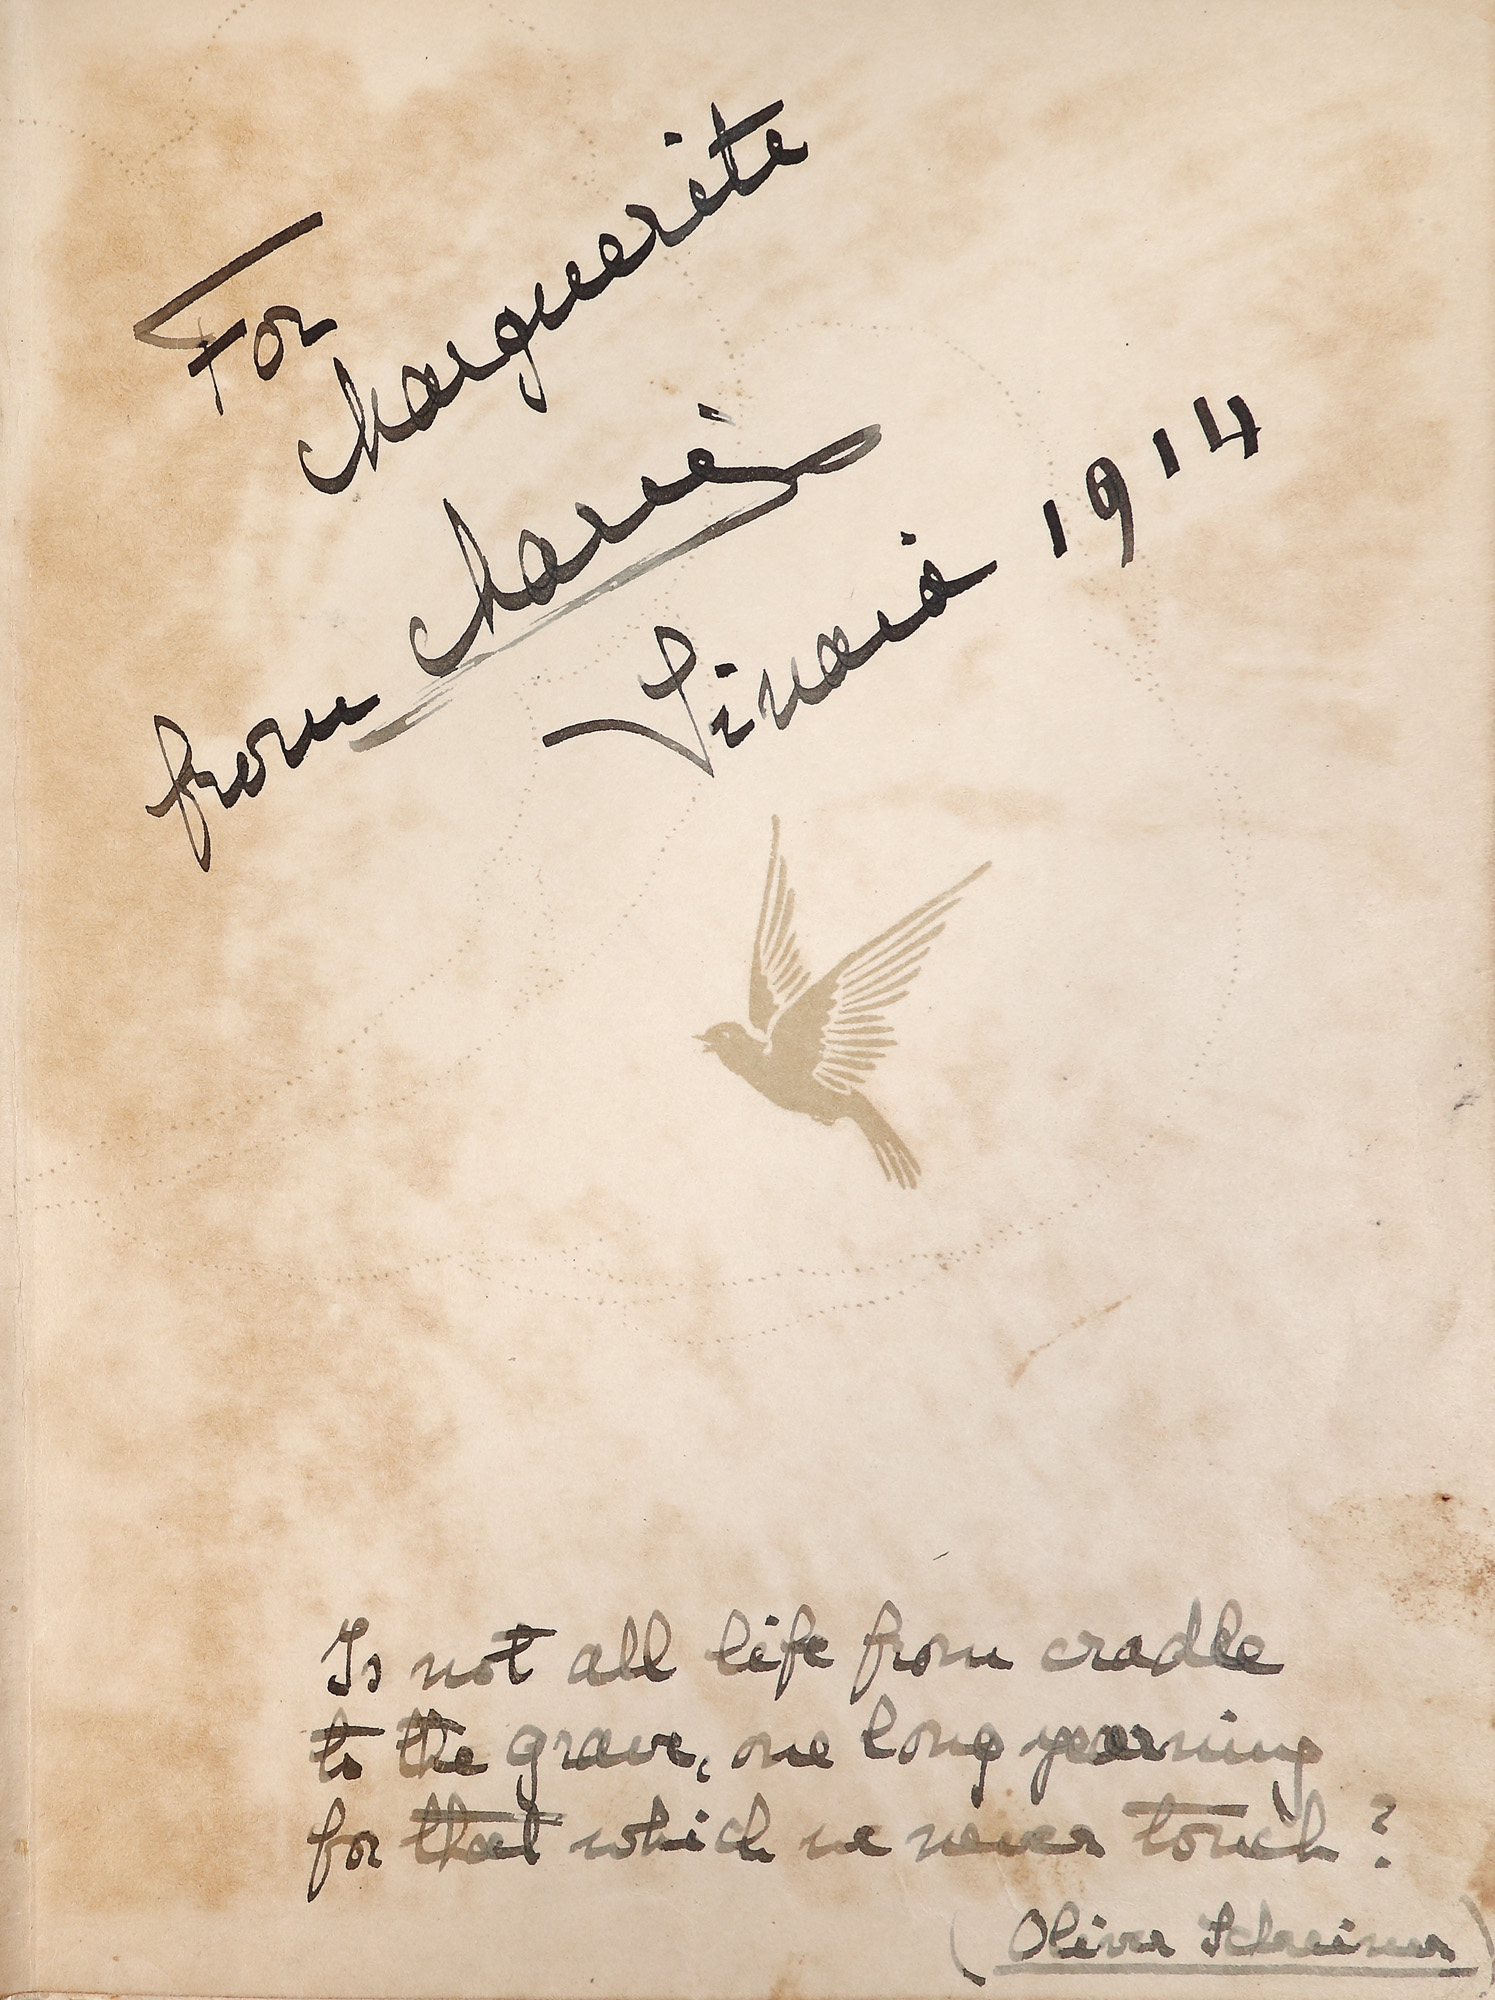 For
Marguerite
from Marie
Sinaia 1914
Is not all life from cradle
to the grave, one long yearning
for that which we never touch?
(Olive Schreiner)